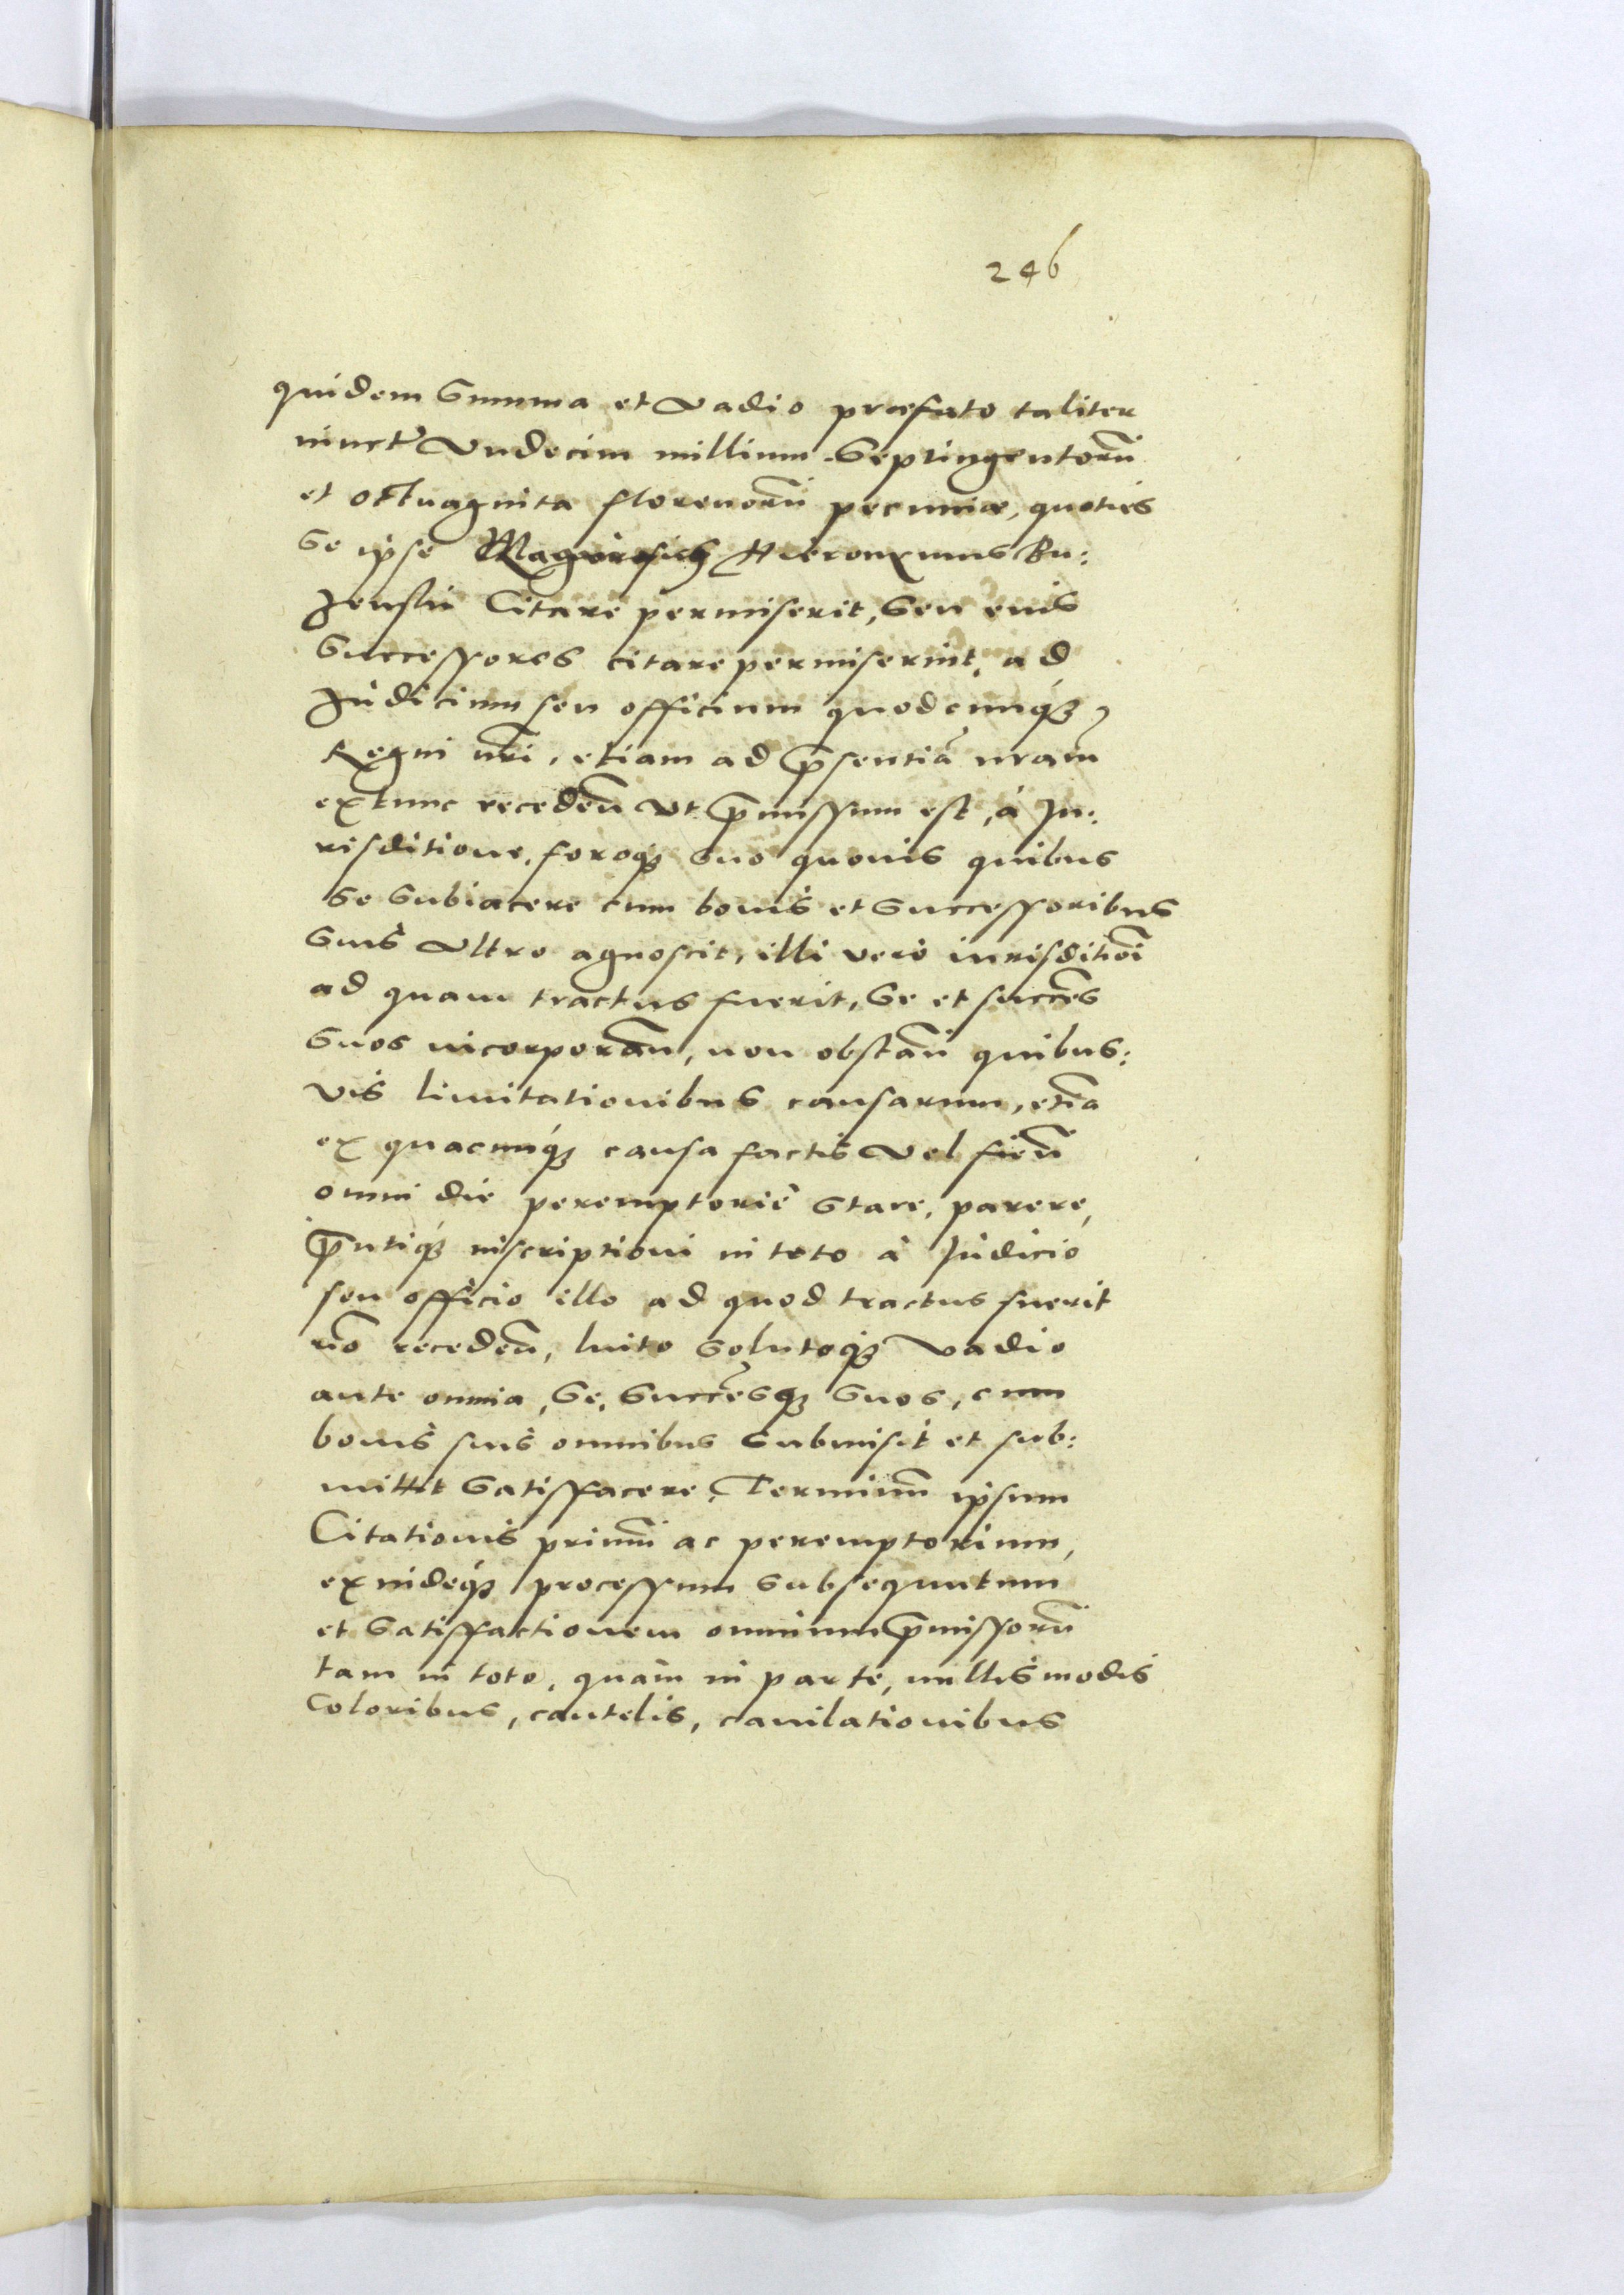 246
quidem Summa et Vadio præfato taliter
iunctĩ Vndecim millium Septingentorũ
et octuaginta florenorũ pecuniæ, quoties
Se ipse Hieronymus Ru:
zensky Citare permiserit, Seu eius
Successores citare permiserint, ad
Judicium seu officium quodcunq3
Regni nr̃i, etiam ad p̃sentiã nram̃
extunc recedeñ Vt p̃missum est, à Ju:
risditione, foroq3 suo quouis quibus
Se Subiacere cum bonis et Successoribus
Suis Vltro agnoscit, illi verò iurisditiõi
ad quam tractus fuerit, Se et succes̃
Suos incorporan̄, non obstan̄ quibus:
vis limitationibus causarum, etiã
ex quacunq3 causa factis Vel fien̄
omni die peremptoriè Stare, parere,
p̃ntiq3 inscriptioni in toto à Judicio
seu officio illo ad quod tractus fuerit
nõ recedeñ, luito Solutoq3 Vadio
ante omnia, Se, Succes̃q3 Suos, cum
bonis suis omnibus Submisit et sub:
mittit Satisfacere, Terminũ ipsum
Citationis primũ ac peremptorium,
exindeq3 processum Subsequutum
et Satisfactionem omnium p̃missorũ
tam in toto, quàm in parte, nullis modis
Coloribus, cautelis, cauilationibus